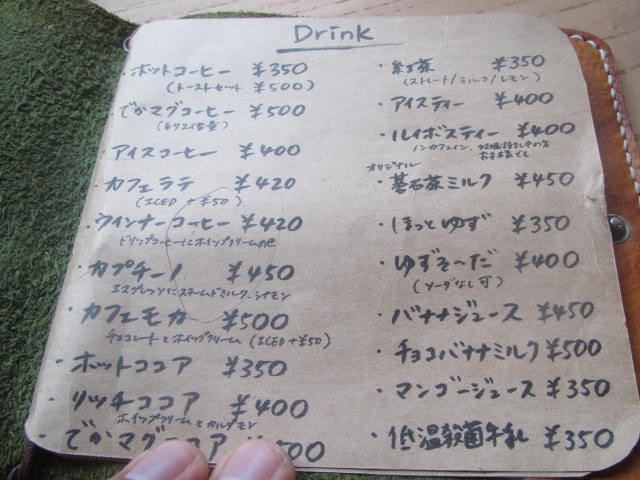 Drink
・ホットコーヒー ¥350
(トーストセット ¥500)
でかマグコーヒー ¥500
アイスコーヒー ¥400
・カフェラテ ¥420
(ICED +¥50)
・ウインナーコーヒー ¥420
ドリップコーヒーにホイップクリームの
・カプチーノ ¥450
エスプレッソにスチームドミルク、シナモン
・カフェモカ ¥500
チョコレートとホイップクリーム (ICED +¥50)
・ホットココア ¥350
・リッチココア ¥400
ホイップクリームとカルダモン
・でかマグココア ¥500
・紅茶 ¥350
(ストレート/ミルク/レモン)
・アイスティー ¥400
・ルイボスティー ¥400
ノンカフェイン、妊娠・授乳中の方
オリジナル
・碁石茶ミルク ¥450
・ほっとゆず ¥350
・ゆずそ〜だ ¥400
(ソーダなし可)
・バナナジュース ¥450
・チョコバナナミルク ¥500
・マンゴージュース ¥350
・低温殺菌牛乳 ¥350